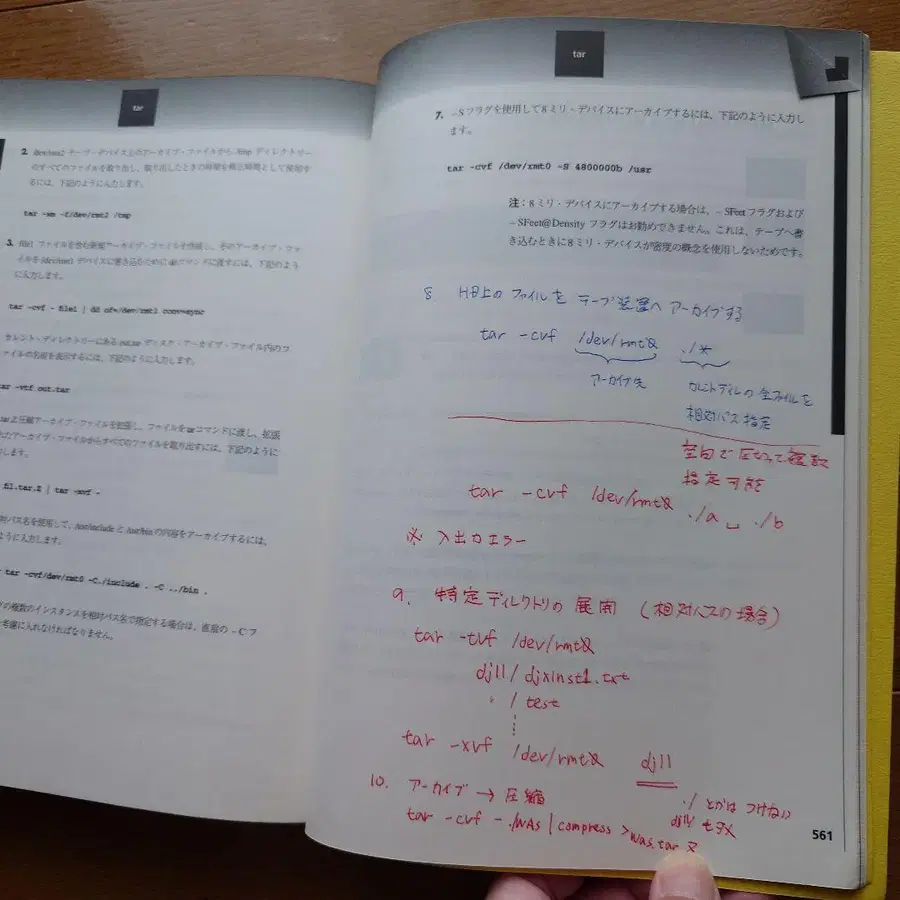 tar
2. /dev/rmt2 テープ・デバイス上のアーカイブ・ファイルから /tmp ディレクトリー
のすべてのファイルを取り出し、取り出したときの時間を修正時間として使用す
るには、下記のように入力します。
tar -xm -f/dev/rmt2 /tmp
3. file1 ファイルを含む新規アーカイブ・ファイルを作成し、そのアーカイブ・ファ
イルを /dev/rmt1 デバイスに書き込むために dd コマンドに渡すには、下記のよう
に入力します。
tar -cvf - file1 | dd of=/dev/rmt1 conv=sync
カレント・ディレクトリーにある out.tar ディスク・アーカイブ・ファイル内のフ
ァイルの名前を表示するには、下記のように入力します。
tar -vtf out.tar
tar 圧縮アーカイブ・ファイルを拡張し、ファイルを tar コマンドに渡し、拡張
たアーカイブ・ファイルからすべてのファイルを取り出すには、下記のように
力します。
fil.tar.Z | tar -xvf -
対パス名を使用して、/usr/include と /usr/bin の内容をアーカイブするには、
ように入力します。
tar -cvf/dev/rmt0 -C./include . -C ../bin .
グの複数のインスタンスを相対パス名で指定する場合は、直前の -C フ
考慮に入れなければなりません。
tar
7. -S フラグを使用して 8 ミリ・デバイスにアーカイブするには、下記のように入力し
ます。
tar -cvf /dev/rmt0 -S 4800000b /usr
注 : 8 ミリ・デバイスにアーカイブする場合は、- SFeet フラグおよび
- SFeet@Density フラグはお勧めできません。これは、テープへ書
き込むときに 8 ミリ・デバイスが密度の概念を使用しないためです。
8. HD上のファイルを テープ装置へ アーカイブする
tar -cvf /dev/rmt& ./*
アーカイブ先 カレントディレの全ファイルを
相対パス指定
空白で区切って複数
指定可能
tar -cvf /dev/rmt& ./a ␣ ./b
※ 入出力エラー
9. 特定ディレクトリの 展開 (相対パスの場合)
tar -tvf /dev/rmt&
djll/djxinst1.txt
〃 / test
tar -xvf /dev/rmt& djll
./ とかは つけない
djll/ もダメ
10. アーカイブ → 圧縮
tar -cvf - ./WAS | compress > was.tar.Z
561